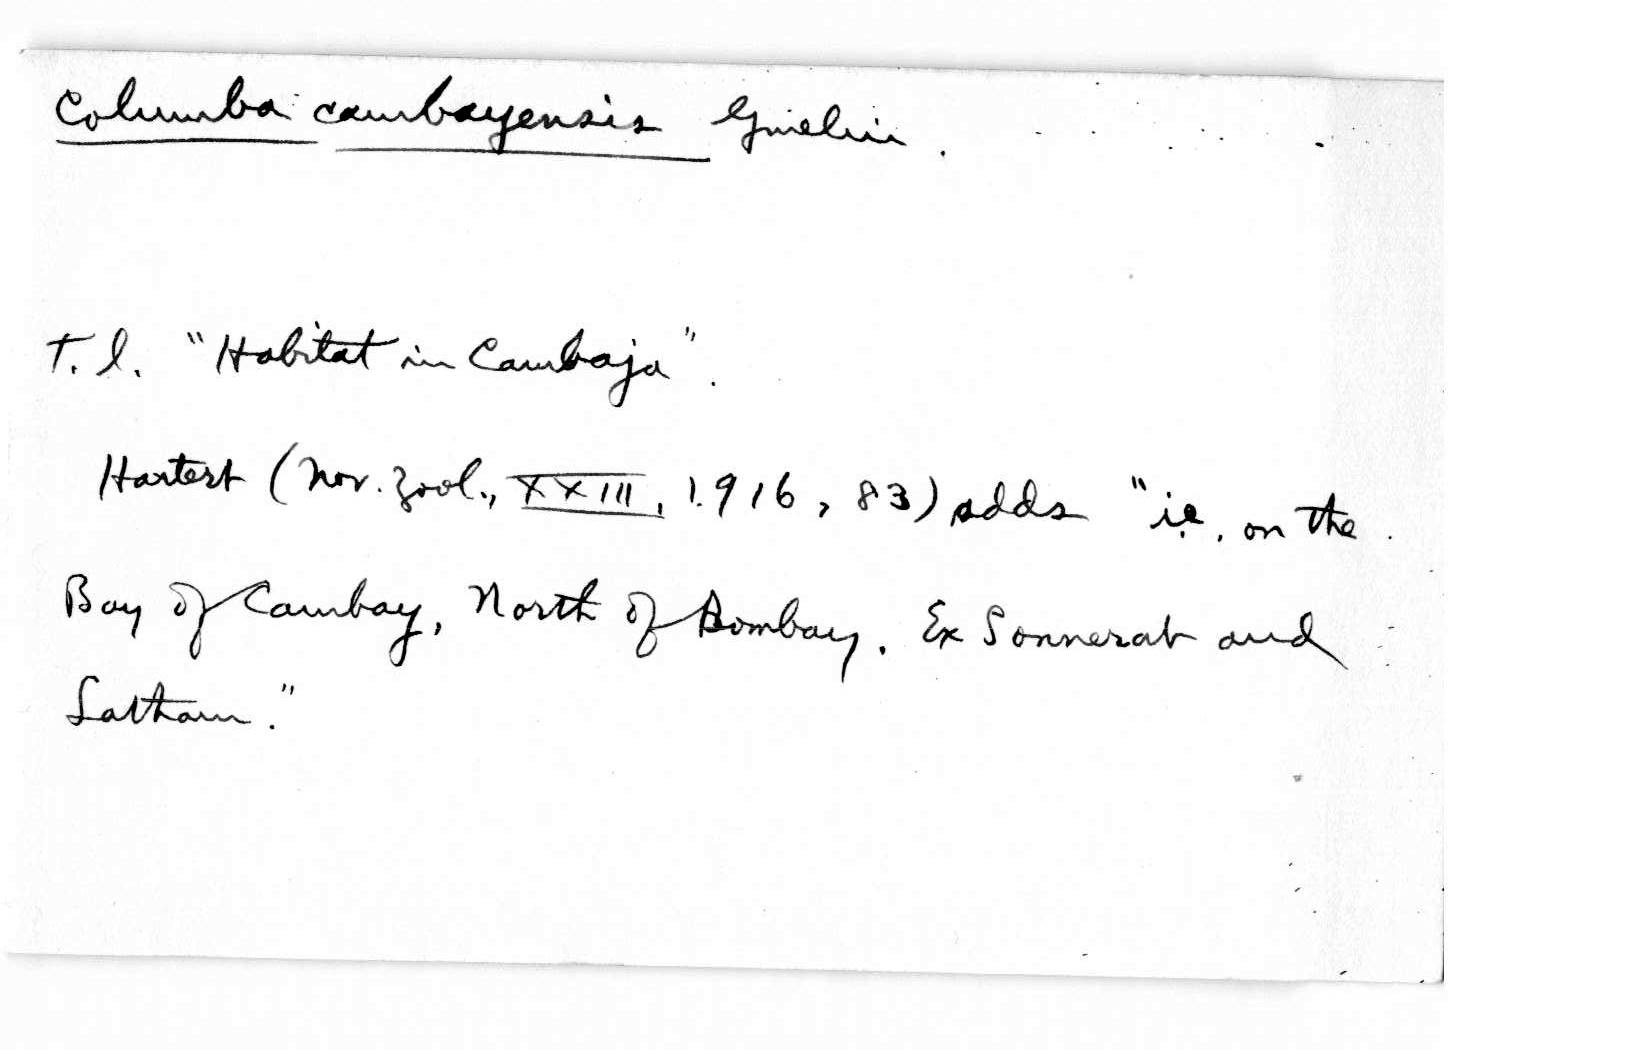 Columba cambayensis Gmelin.
T. l. "Habitat in Cambaja".
Hartert (Nov. Zool., XXIII, 1916, 83) adds "i.e., on the
Bay of Cambay, North of Bombay. Ex Sonnerat and
Latham."